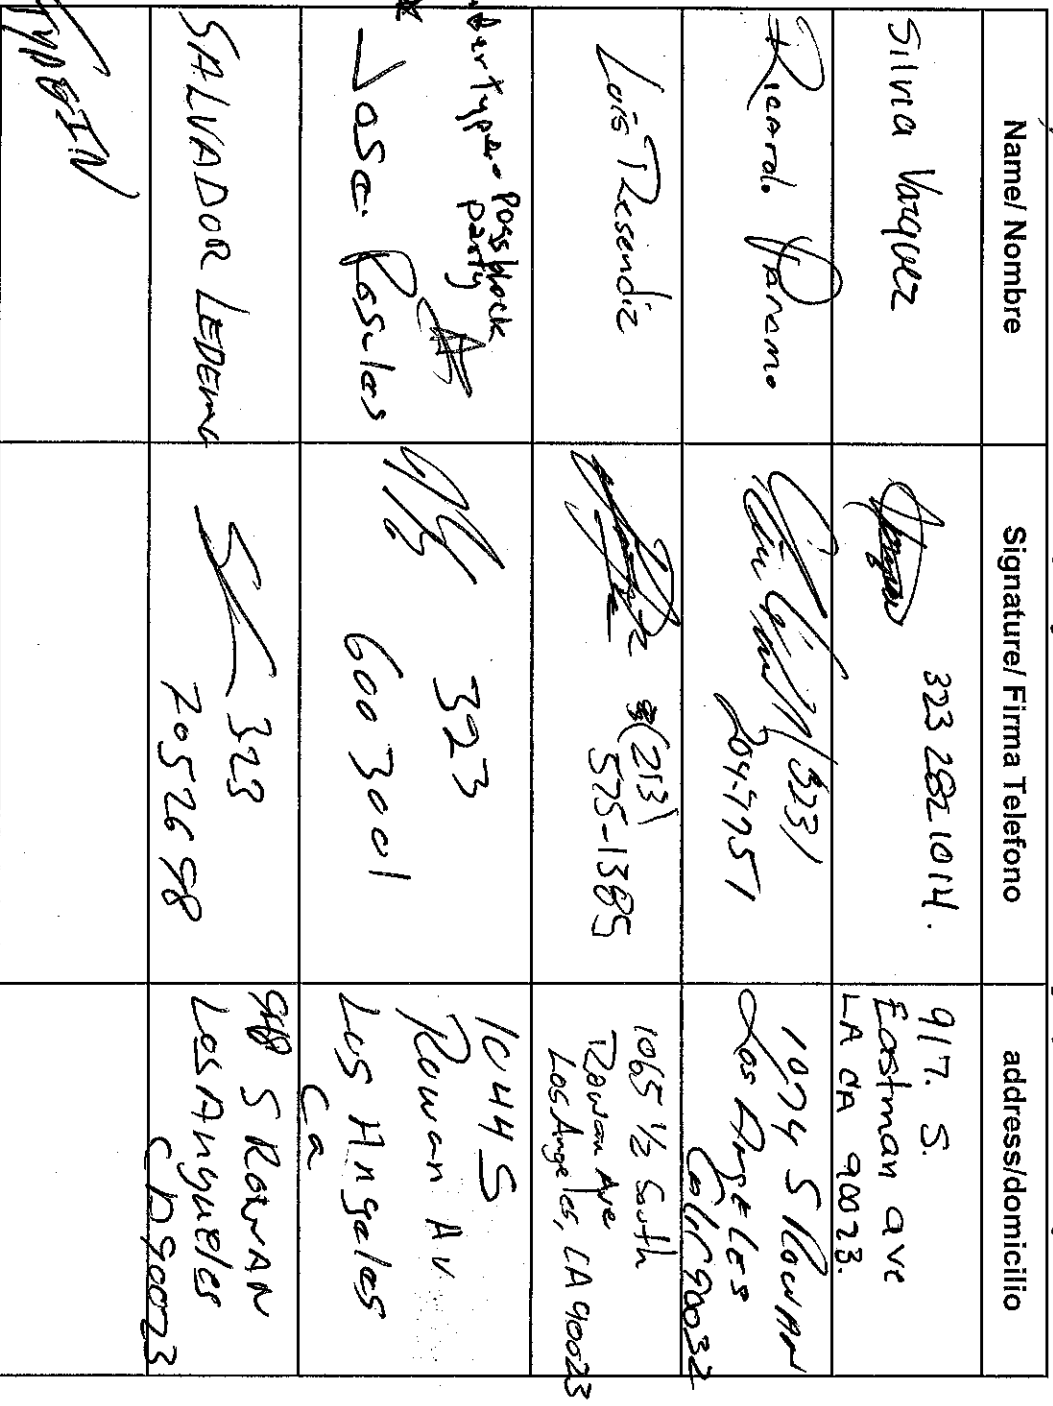 Name/ Nombre
Signature/ Firma Telefono
address/domicilio
Silvia Vazquez
323 282 1014.
917. S.
Eastman ave
LA CA 90023.
Ricardo Paramo
(323)
1074 S Rowan
Los Angeles
Calif 90032
Luis Resendiz
(213)
575-1385
1065 1/2 South
Rowan Ave
Los Angeles, CA 90023
party
Jose Rosales
323
600 3001
1044 S
Rowan Av.
Los Angeles
Ca
SALVADOR LEDEMA
323
7052698
S ROWAN
Los Angueles
90023
TYPEIN